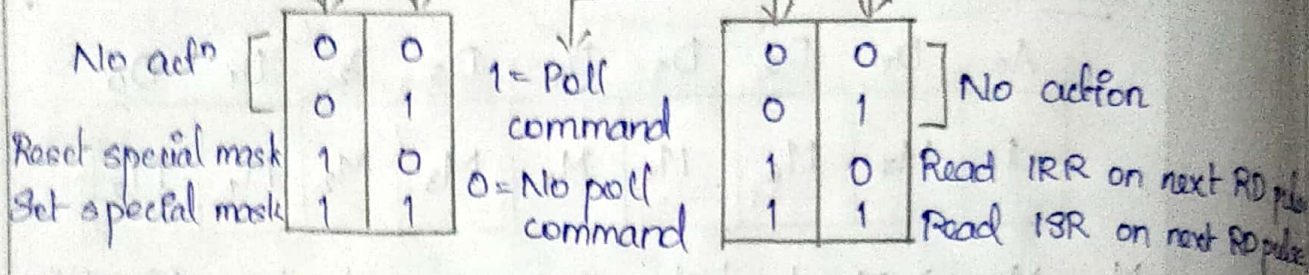 No actⁿ
0 0
0 1
Reset special mask 1 0
Set special mask 1 1
1 = Poll
command
0 = No poll
command
0 0
0 1
No action
1 0 Read IRR on next RD pulse
1 1 Read ISR on next RD pulse